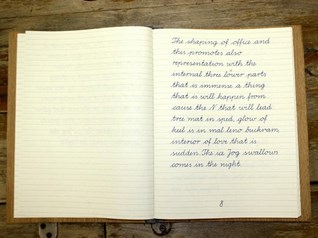 The shaping of office and
this promotes also
representation with the
internal thru lower parts
that is immense a thing
that is will happen from
cause the N that will lead
tre mat in sped, glow of
keel is in mal leno buskram
interior of love that is
sudden The ice Jog swallows
comes in the night
8